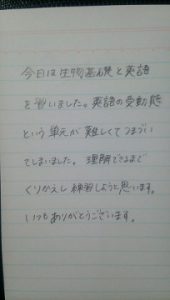 今日は生物基礎と英語
を習いました。英語の受動態
という単元が難しくてつまづい
てしまいました。理解できるまで
くりかえし練習しようと思います。
いつもありがとうございます。